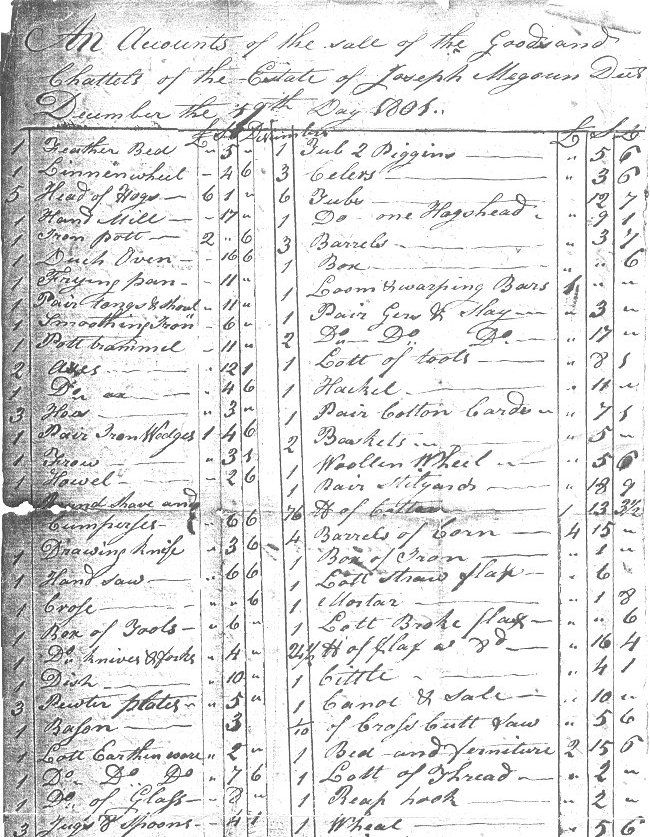 An Accounts of the sale of the Goods and
Chattels of the Estate of Joseph Megoun Decd
December the 19th Day 1801..
£ S D
1 Feather Bed " 5 "
1 Linnen wheel " 4 6
5 Head of Hogs 6 1 "
1 Hand Mill " 17 "
1 Iron pott 2 " 6
1 Duch Oven " 16 6
1 Frying pan " 11 "
1 Pair tongs & shovel " 11 "
1 Smoothing Iron " 6 "
1 Pott trammel " 11 "
2 Axes " 12 1
1 Do ax " 4 6
3 Hoes " 3 "
1 Pair Iron Wedges 1 4 6
1 Frow " 3 1
1 Howel " 2 6
Round shave and
Cumperses " 6 6
1 Drawing knife " 3 6
1 Hand saw " 6 6
1 Crose " " 6
1 Box of Tools " 6 "
1 Do knives & forks " 4 "
1 Dish " 10 "
3 Pewter plates " 5 "
1 Bason 3
1 Lott Earthen ware " 2 "
1 Do Do Do " 7 6
1 Do of Glass " 8 "
3 Jugs & Spoons " 4 1
£ S D
1 Tub 2 Piggins " 5 6
3 Celers " 3 6
6 Tubs " 12 7
1 Do one Hogshead " 9 1
3 Barrels " 3 7
1 Box " " 6
1 Loom & warping Bars 1 " "
1 Pair Gers & Slay " 3 "
2 Do Do Do " 17 "
1 Lott of tools " 8 1
1 Hackel " 11 "
1 Pair Cotton Cards " 7 1
2 Baskets " 5 "
1 Woollen Wheel " 5 6
1 Pair Stilyards " 18 9
76 lb of Cotton 1 13 3½
4 Barrels of Corn 4 15 "
1 Box of Iron " 1 "
1 Lott straw flax " 6
1 Mortar " 1 8
1 Lott Broke flax " " 6
24½ lb of flax at 8d " 16 4
1 Cittle " 4 1
1 Canoe & sale " 10 "
1/10 of Cross Cutt saw " 5 6
1 Bed and furniture 2 15 6
1 Lott of Thread " 2 "
1 Reap hook " 2 "
1 Wheal " 5 6